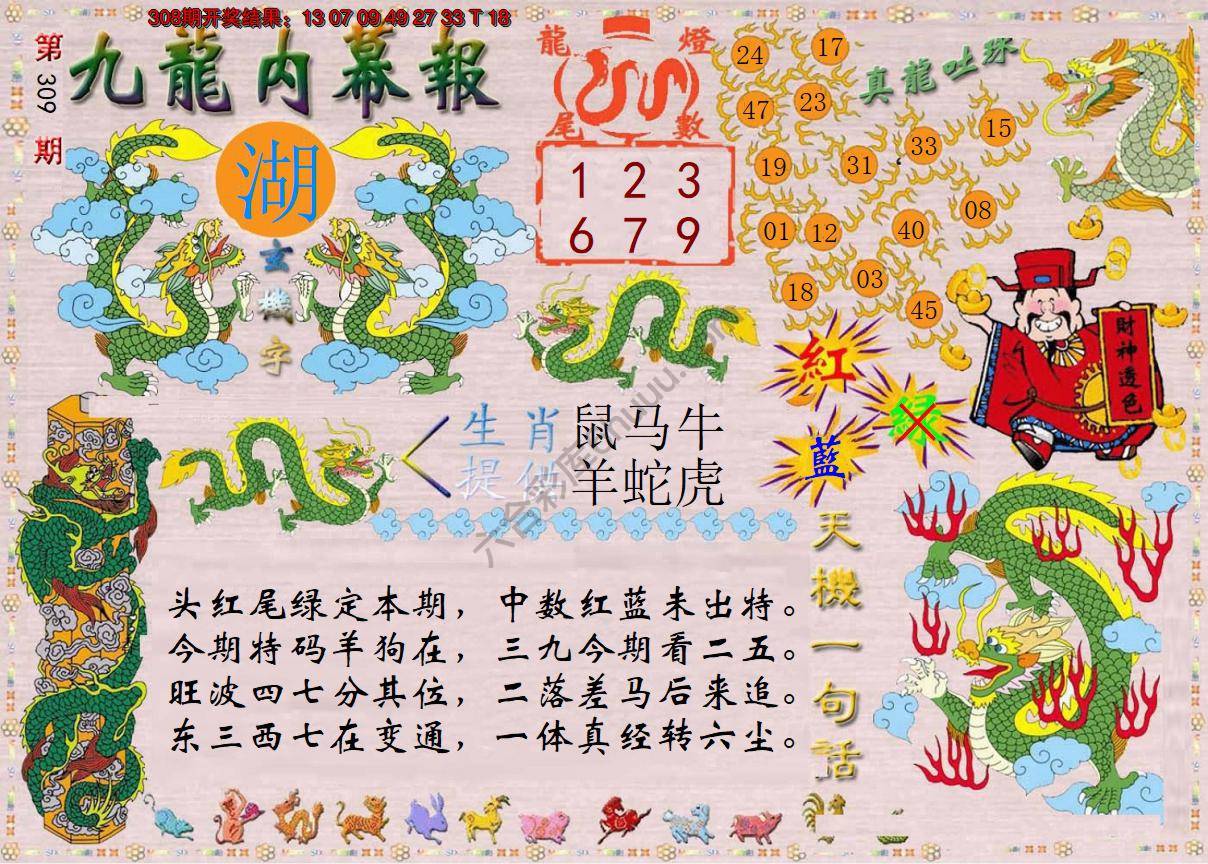 308期开奖结果：13 07 09 49 27 33 T 18
第309期
九龍内幕報
湖
玄機字
龍燈
尾數
1 2 3
6 7 9
真龍吐珠
24 17
47 23
19 31 33 15
01 12 40 08
18 03 45
財神透色
紅
绿
藍
生肖 鼠马牛
提供 羊蛇虎
天機一句話
头红尾绿定本期，中数红蓝未出特。
今期特码羊狗在，三九今期看二五。
旺波四七分其位，二落差马后来追。
东三西七在变通，一体真经转六尘。